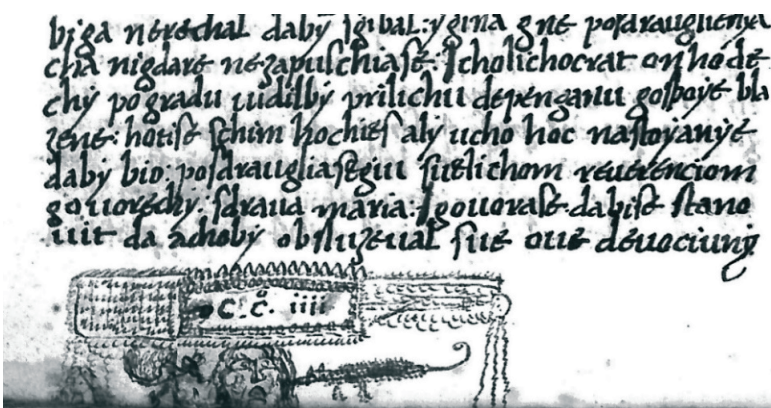 biga nerechal daby sgibal: ygina gne posdrauglienya
cha nigdare nezapuschiase. scholichocrat on hode
chy po gradu uidilby prilichu depenganu gospoye bla
zene: hotise schim hochies aly ucho hoc nastoyanye
daby bio: posdraugliasegiu suelichom reuerenciom
gouorechy: sdraua maria: Igouorase dabise stano
uit da achoby obsluzeual sue oue deuociuny
c.c. iiii